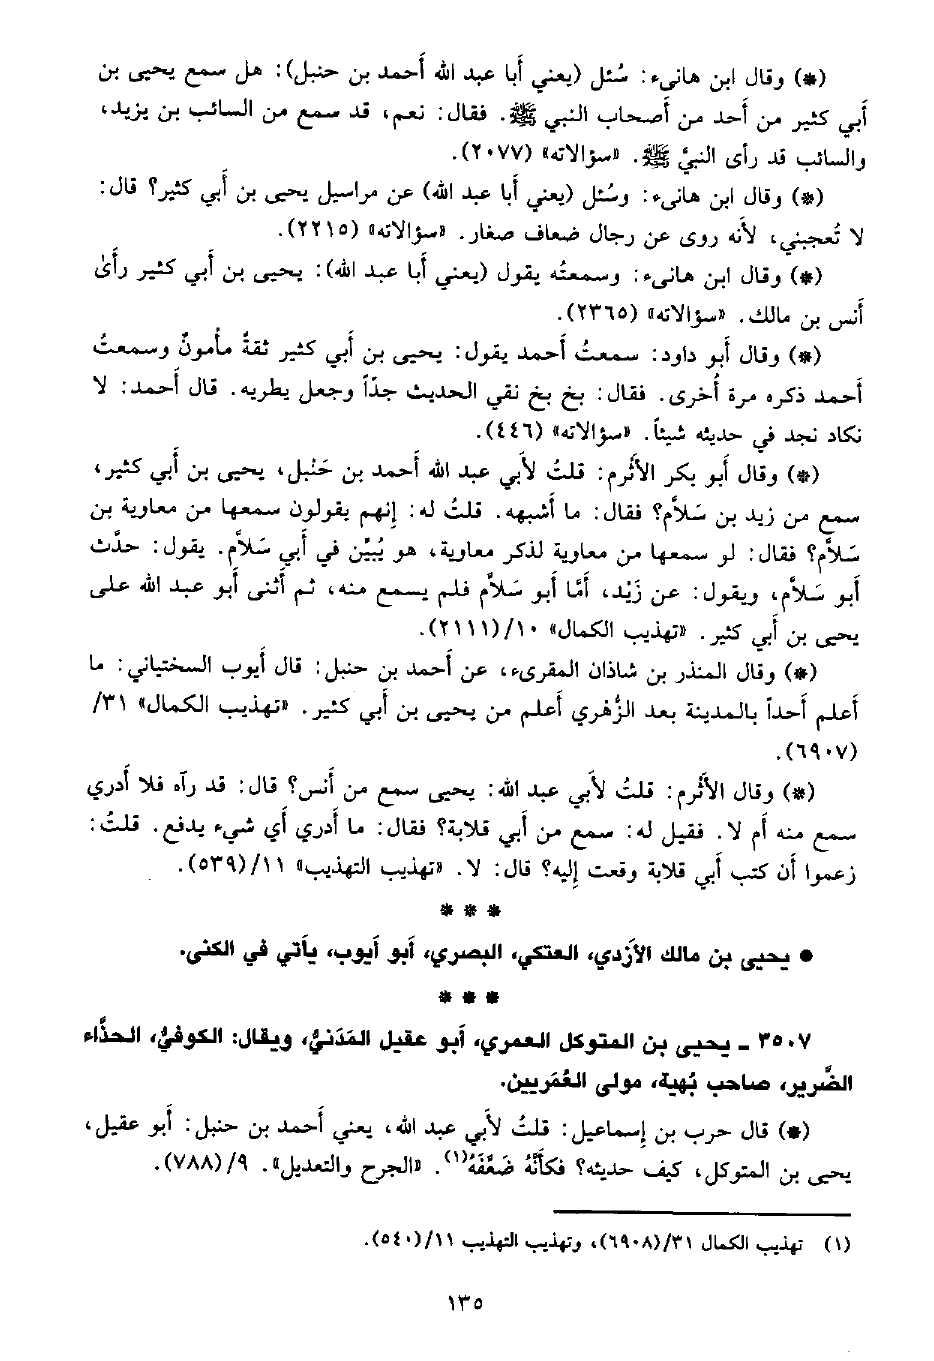 (*) وقال ابن هانىء: سُئل (يعني أَبا عبد الله أَحمد بن حنبل): هل سمع يحيى بن
أَبي كثير من أَحد من أَصحاب النبي ﷺ. فقال: نعم، قد سمع من السائب بن يزيد،
والسائب قد رأى النبيَّ ﷺ. «سؤالاته» (٢٠٧٧).
(*) وقال ابن هانىء: وسُئل (يعني أَبا عبد الله) عن مراسيل يحيى بن أَبي كثير؟ قال:
لا تُعجبني، لأنه روى عن رجال ضعاف صغار. «سؤالاته» (٢٢١٥).
(*) وقال ابن هانىء: وسمعتُه يقول (يعني أَبا عبد الله): يحيى بن أَبي كثير رأَىٰ
أَنس بن مالك. «سؤالاته» (٢٣٦٥).
(*) وقال أَبو داود: سمعتُ أَحمد يقول: يحيى بن أَبي كثير ثقةٌ مأْمونٌ وسمعتُ
أَحمد ذكره مرة أُخرى. فقال: بخ بخ نقي الحديث جدّاً وجعل يطريه. قال أَحمد: لا
نكاد نجد في حديثه شيئاً. «سؤالاته» (٤٤٦).
(*) وقال أَبو بكر الأَثْرم: قلتُ لأَبي عبد الله أَحمد بن حَنْبل، يحيى بن أَبي كثير،
سمع من زيد بن سَلاَّم؟ فقال: ما أَشبهه. قلتُ له: إِنهم يقولون سمعها من معاوية بن
سَلاَّم؟ فقال: لو سمعها من معاوية لذكر معاوية، هو يُبيِّن في أَبي سَلاَّم. يقول: حدَّث
أَبو سَلاَّم، ويقول: عن زَيْد، أَمَّا أَبو سَلاَّم فلم يسمع منه، ثم أَثنى أَبو عبد الله على
يحيى بن أَبي كثير. «تهذيب الكمال» ١٠/(٢١١١).
(*) وقال المنذر بن شاذان المقرىء، عن أَحمد بن حنبل: قال أَيوب السختياني: ما
أَعلم أَحداً بالمدينة بعد الزُّهري أَعلم من يحيى بن أَبي كثير. «تهذيب الكمال» ٣١/
(٦٩٠٧).
(*) وقال الأَثْرم: قلتُ لأَبي عبد الله: يحيى سمع من أَنس؟ قال: قد رآه فلا أَدري
سمع منه أَم لا. فقيل له: سمع من أَبي قلابة؟ فقال: ما أَدري أَي شيء يدفع. قلتُ:
زعموا أَن كتب أَبي قلابة وقعت إِليه؟ قال: لا. «تهذيب التهذيب» ١١/(٥٣٩).
* * *
● يحيى بن مالك الأَزدي، العتكي، البصري، أَبو أَيوب، يأتي في الكنى.
* * *
٣٥٠٧ ـ يحيى بن المتوكل العمري، أَبو عقيل المَدَنيُّ، ويقال: الكوفيُّ، الحذَّاء
الضَّرير، صاحب بُهية، مولى العُمَريين.
(*) قال حرب بن إِسماعيل: قلتُ لأَبي عبد الله، يعني أَحمد بن حنبل: أَبو عقيل،
يحيى بن المتوكل، كيف حديثه؟ فكأَنَّهُ ضَعَّفَهُ(١). «الجرح والتعديل». ٩/(٧٨٨).
(١) تهذيب الكمال ٣١/(٦٩٠٨)، وتهذيب التهذيب ١١/(٥٤٠).
١٣٥